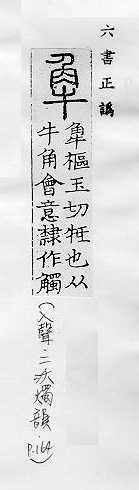 六書正譌
樞玉切牴也从
牛角會意隸作觸
(入聲二沃燭韻 p.164)